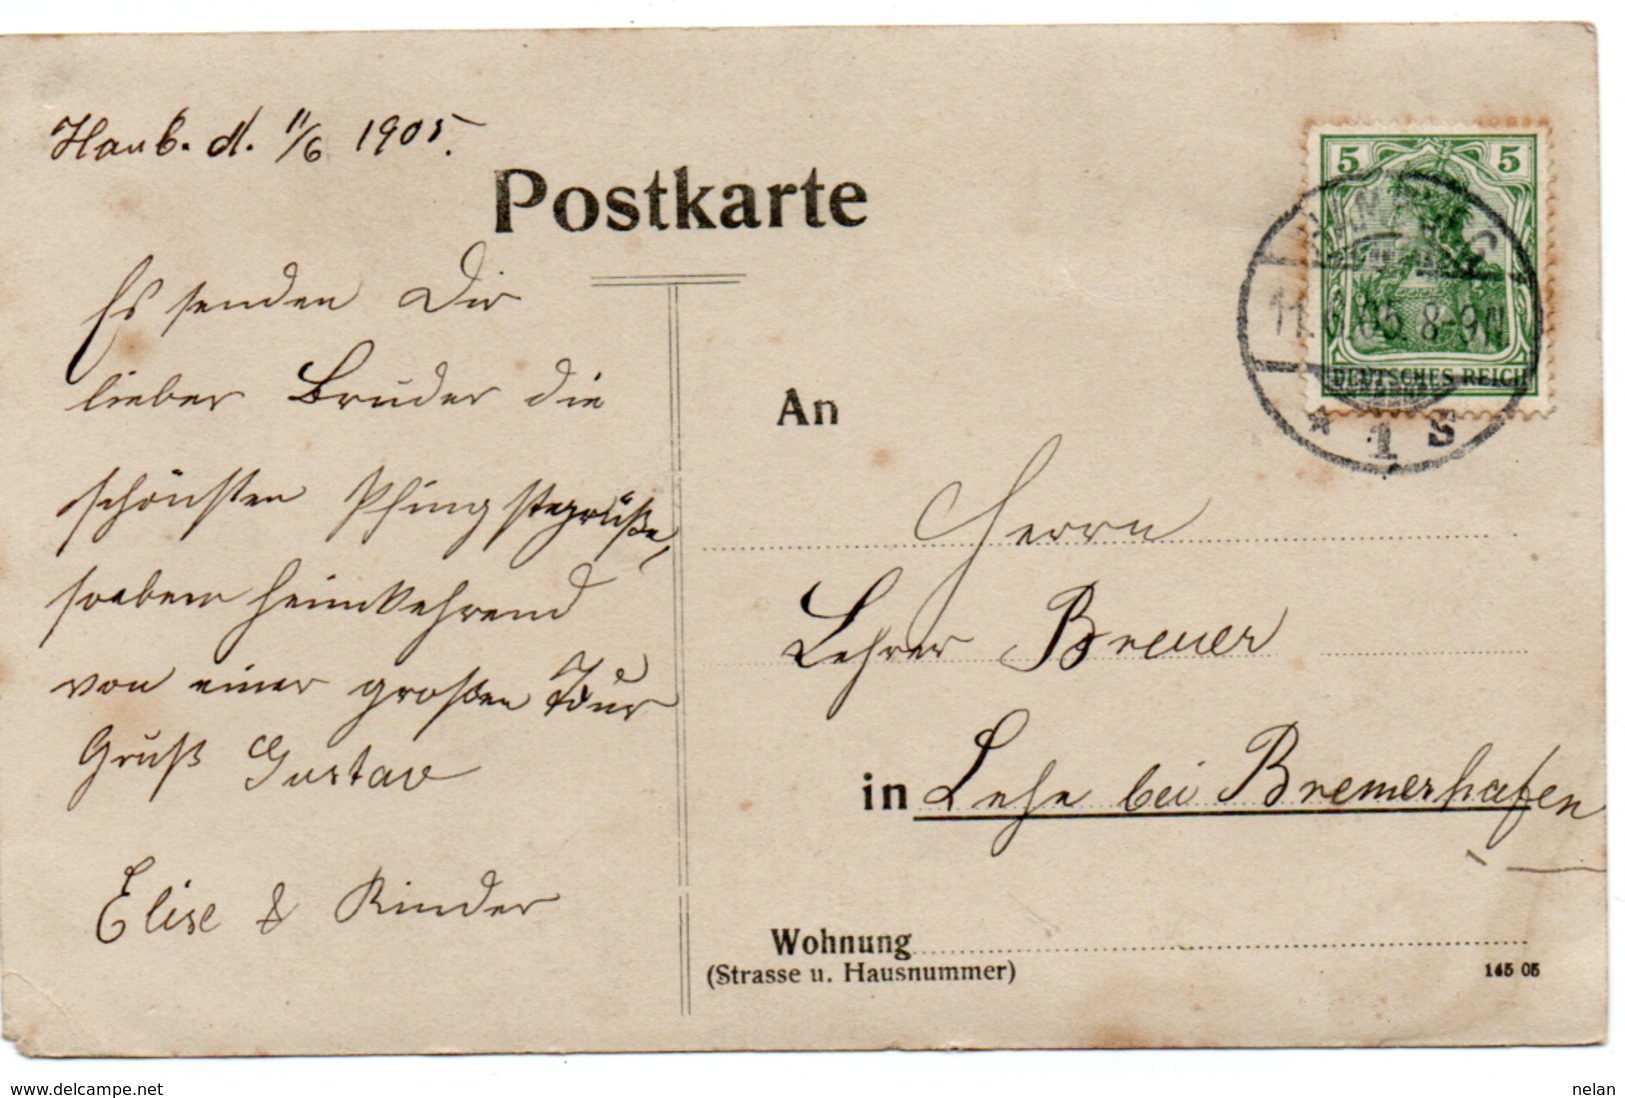 Hamb. d. 11/6 1905.
Postkarte
Es senden Dir
lieber Bruder die
schönsten Pfingstgrüße,
soeben heimkehrend
von einer großen Tour
Gruß Gustav
Elise & Kinder
5 5
DEUTSCHES REICH
HAMBURG
11.6.05. 8-9N
* 1 S
An
Herrn
Lehrer Breuer
in Lehe bei Bremerhafen
Wohnung
(Strasse u. Hausnummer)
145 05
www.delcampe.net
nelan